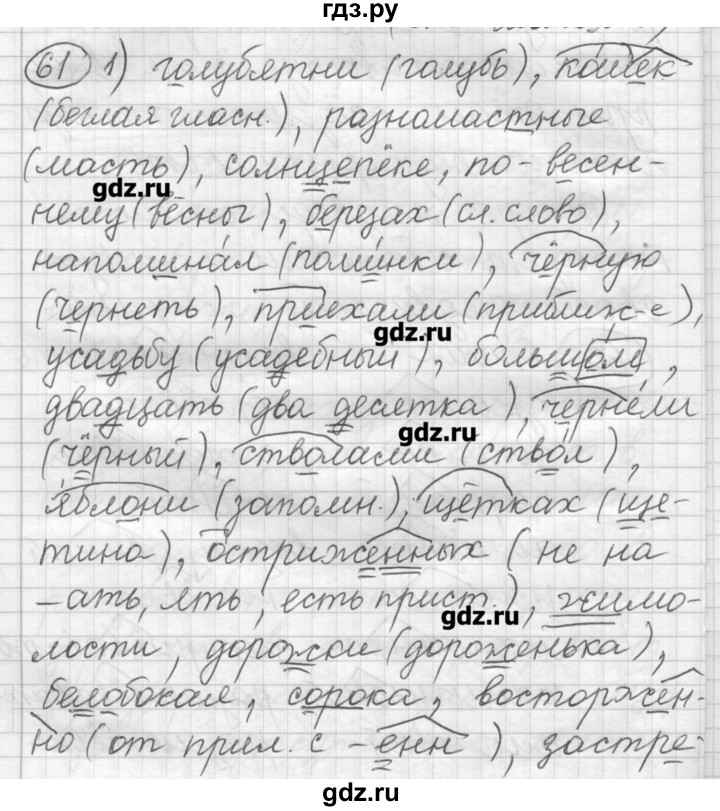 гдз.ру
61 1) голубятни (голубь), кошек
(беглая гласн.), разномастные
(масть), солнцепёке, по-весен-
gdz.ru
нему (вёсны), берёзах (сл. слово),
напоминал (поминки), чёрную
(чернеть), приехали (приближ-е),
gdz.ru
усадьбу (усадебный), большом,
двадцать (два десятка), чернели
gdz.ru
(чёрный), стволами (ствол),
яблони (запомн.), щётках (ще-
тина), остриженных (не на
-ать, ять, есть прист.), жимо-
gdz.ru
лости, дорожки (дороженька),
белобокая, сорока, восторжен-
но (от прил. с -енн), застре-
gdz.ru